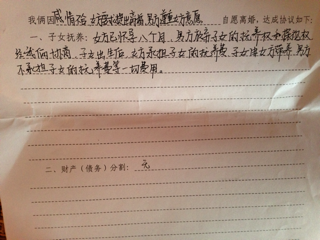 我俩因 感情不好 女方提出离婚 男方愿意 自愿离婚，达成协议如下：
一、子女抚养：女方已怀孕八个月，男方放弃子女的抚养权和探视权
经我俩协商，子女出生后，女方承担子女的抚养费，子女随女方生活，男方
不承担子女的抚养费等一切费用。
二、财产（债务）分割：无